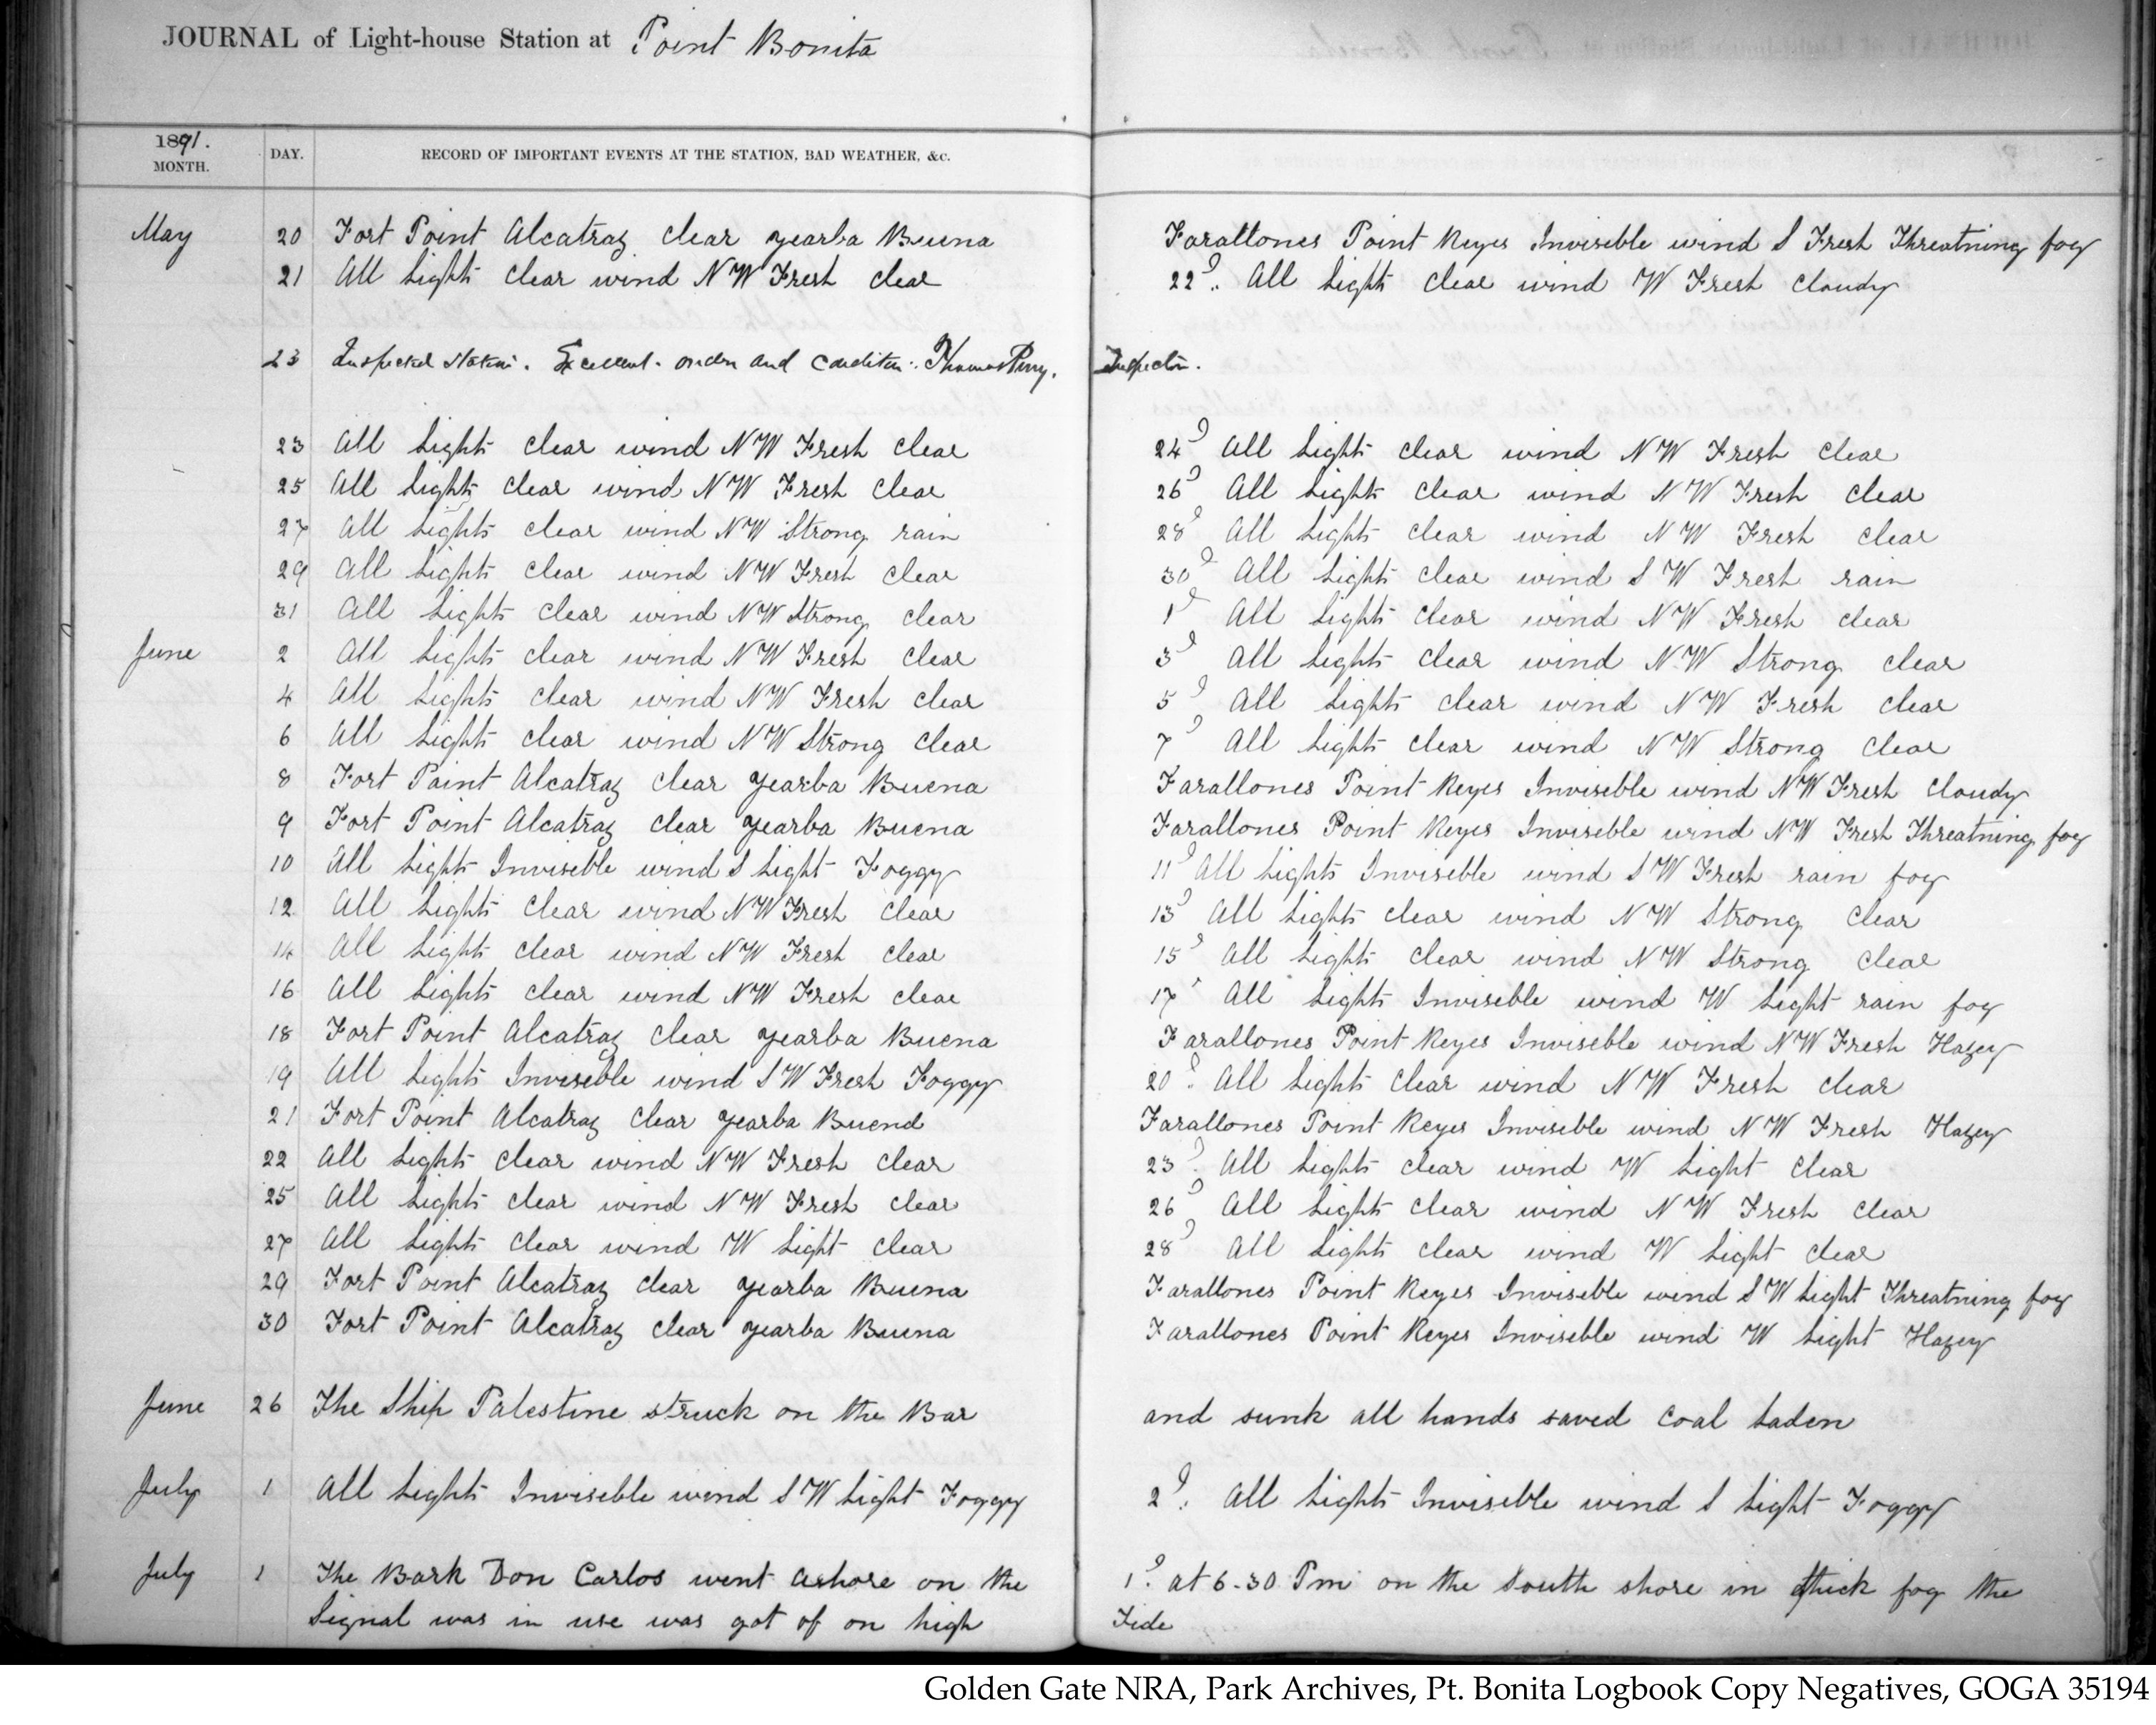 JOURNAL of Light-house Station at Point Bonita
1891.
MONTH.
DAY.
RECORD OF IMPORTANT EVENTS AT THE STATION, BAD WEATHER, &c.
May 20 Fort Point Alcatraz clear yearba Buena Farallones Point Reyes Invisible wind S Fresh Threatning fog
21 All Lights clear wind NW Fresh clear 22d. All Lights clear wind W Fresh cloudy
23 Inspected Station. Excellent order and condition. Thomas Perry. Inspector.
23 All Lights clear wind NW Fresh clear 24d All Lights clear wind NW Fresh clear
25 All Lights clear wind NW Fresh clear 26d All Lights clear wind NW Fresh clear
27 All Lights clear wind NW Strong rain 28d All Lights clear wind NW Fresh clear
29 All Lights clear wind NW Fresh clear 30d All Lights clear wind SW Fresh rain
31 All Lights clear wind NW Strong clear 1d All Lights clear wind NW Fresh clear
June 2 All Lights clear wind NW Fresh clear 3d All Lights clear wind NW Strong clear
4 All Lights clear wind NW Fresh clear 5d All Lights clear wind NW Fresh clear
6 All Lights clear wind NW Strong clear 7d All Lights clear wind NW Strong clear
8 Fort Point Alcatraz clear yearba Buena Farallones Point Reyes Invisible wind NW Fresh cloudy
9 Fort Point Alcatraz clear yearba Buena Farallones Point Reyes Invisible wind NW Fresh Threatning fog
10 All Lights Invisible wind S Light Foggy 11d All Lights Invisible wind SW Fresh rain fog
12 All Lights clear wind NW Fresh clear 13d All Lights clear wind NW Strong clear
14 All Lights clear wind NW Fresh clear 15d All Lights clear wind NW Strong clear
16 All Lights clear wind NW Fresh clear 17d All Lights Invisible wind W Light rain fog
18 Fort Point Alcatraz clear yearba Buena Farallones Point Reyes Invisible wind NW Fresh Hazey
19 All Lights Invisible wind SW Fresh Foggy 20d. All Lights clear wind NW Fresh clear
21 Fort Point Alcatraz clear yearba Buena Farallones Point Reyes Invisible wind NW Fresh Hazey
22 All Lights clear wind NW Fresh clear 23d. All Lights clear wind W Light clear
25 All Lights clear wind NW Fresh clear 26d All Lights clear wind NW Fresh clear
27 All Lights clear wind W Light clear 28d All Lights clear wind W Light clear
29 Fort Point Alcatraz clear yearba Buena Farallones Point Reyes Invisible wind SW Light Threatning fog
30 Fort Point Alcatraz clear yearba Buena Farallones Point Reyes Invisible wind W Light Hazey
June 26 The Ship Palestine struck on the Bar and sunk all hands saved Coal Laden
July 1 All Lights Invisible wind SW Light Foggy 2d. All Lights Invisible wind S Light Foggy
July 1 The Bark Don Carlos went ashore on the 1d. at 6-30 Pm on the South shore in thick fog the
Signal was in use was got of on high Tide
Golden Gate NRA, Park Archives, Pt. Bonita Logbook Copy Negatives, GOGA 35194